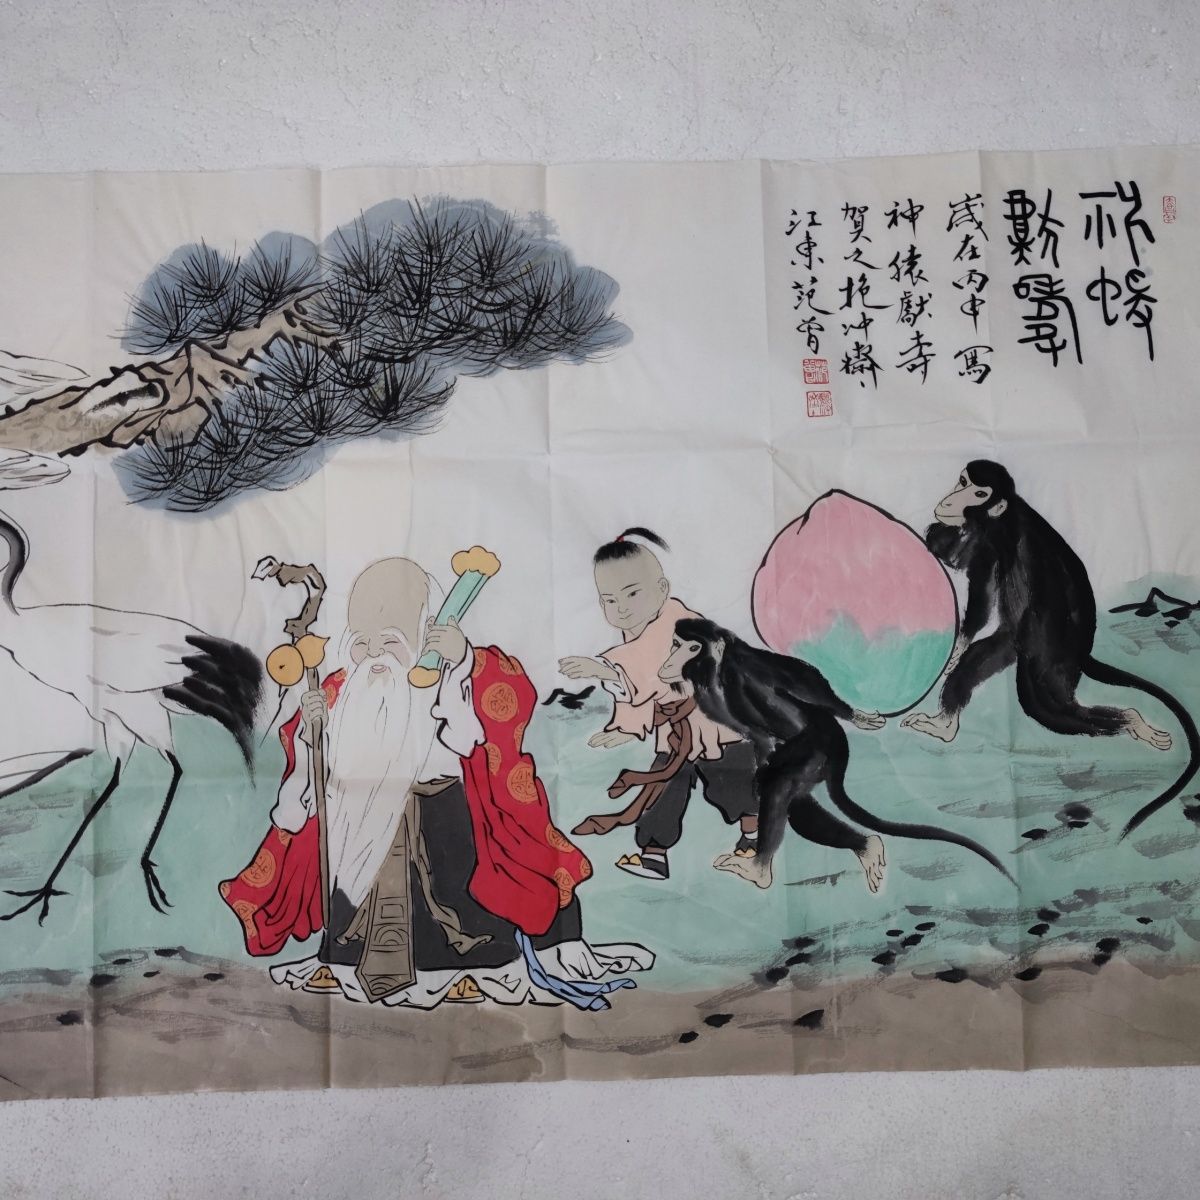 神蝯
獻壽
歲在丙申寫
神猿獻壽
賀之抱冲齋
江東范曾